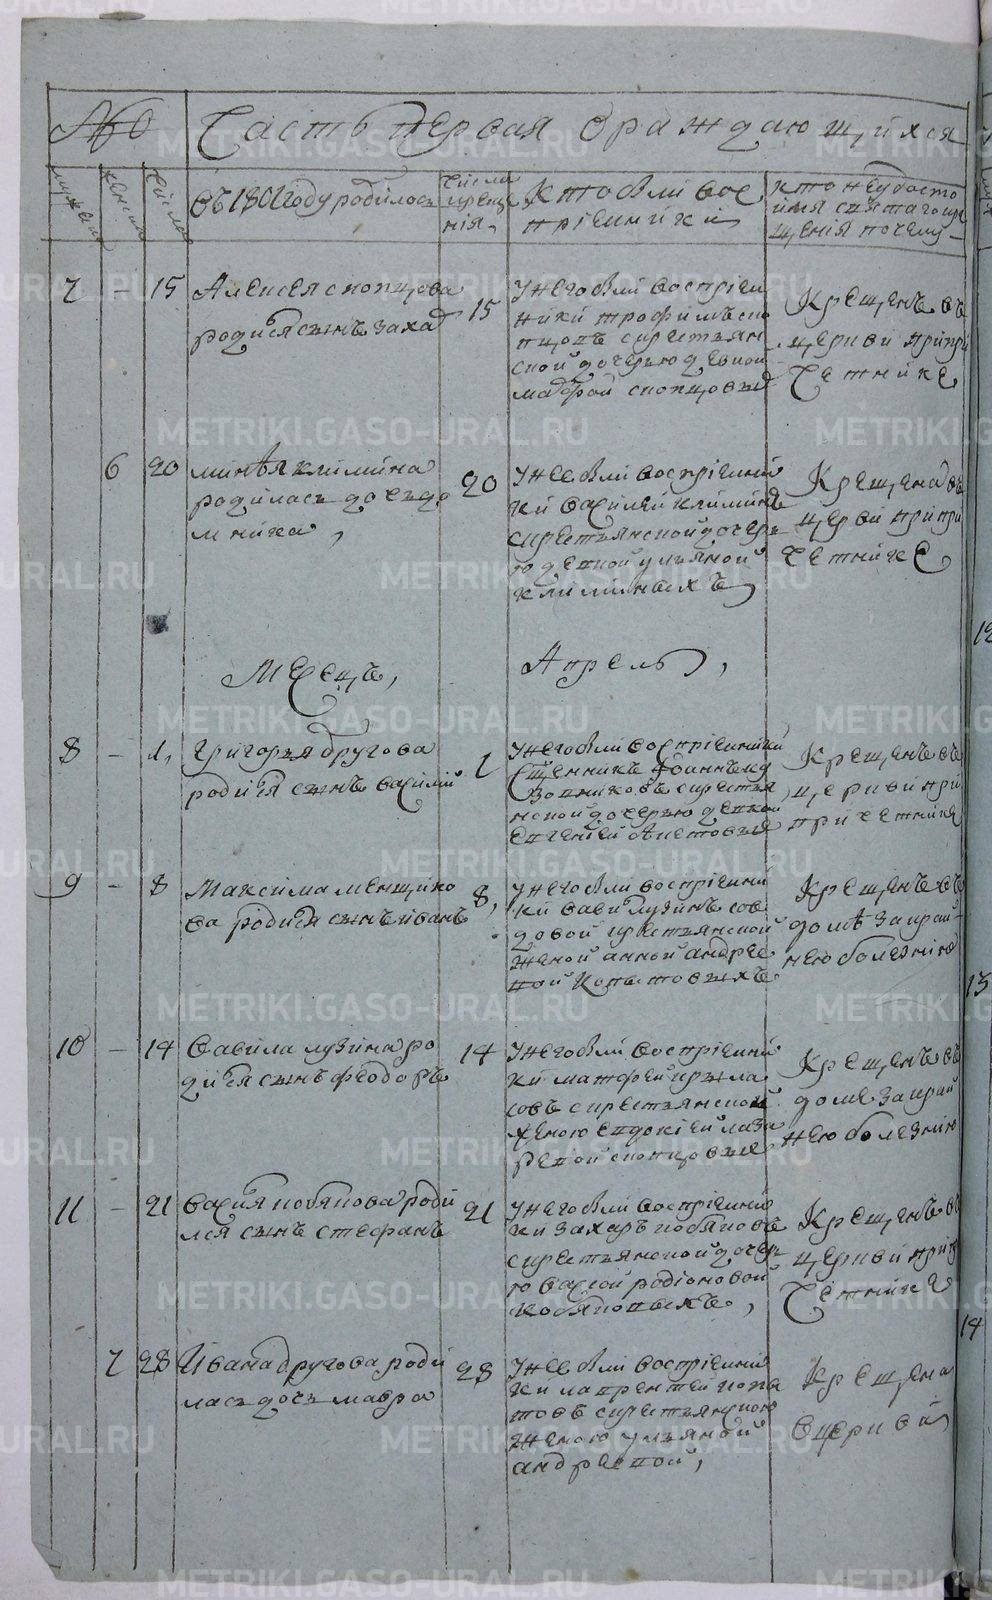 № Часть первая ораждающихся
мужеска
женска
Число
въ 1801 году родилось
числа креще
нія
Кто были вос
пріемники
кто неудосто
ился святаго кре
щенія почему
7 – 15 Алексея скопцова
родился сынъ заха
15
Унего были воспріем
ники трофимъ ско
пцовъ скрестьян
ской дочерью девкой
скопцовы
Крещенъ въ
церкви при при
четнике
6 20 минѣя климина
родилась дочь до
мника,
20
Унее были воспріемни
ки василей климинъ
скрестьянской дочер
ю девкой ульяной
климиныхъ
Крещена въ
церкви при при
четнике
Месецъ, Апрель,
8 – 1, Григорья другова
родился сынъ василий
1
Унего были воспріемники
скрестья
нской дочерью девкой
Крещенъ въ
церкви при
причетнике
9 – 8 Максима менщико
ва родился сынъ иванъ
8,
Унего были воспріемни
ки вавила лузинъ сов
довой крестьянской
женой анной андрее
вой Копытовыхъ
Крещенъ въ
доме за край
нею болезнію
10 – 14 Вавила лузина ро
дился сынъ феодоръ
14
Унего были воспріемни
ки матфей
скрестьянской
женою евдокией лаза
ревой скопцовые
Крещенъ въ
доме за край
нею болезнію
11 – 21 Васил я кобякова роди
лся сынъ стефанъ
21
Унего были воспріемни
ки захаръ кобяковъ
скрестьянской дочер
ю васой родіоновой
кобяковыхъ,
Крещенъ въ
церкви при при
четнике
7 28 Ивана другова роди
лась дочь мавра
28
Унее были воспріемни
ки лаврентей копы
товъ скрестьянскою
женою ульяной
андреевой,
Крещена
вцеркви
12
13
14
METRIKI.GASO-URAL.RU